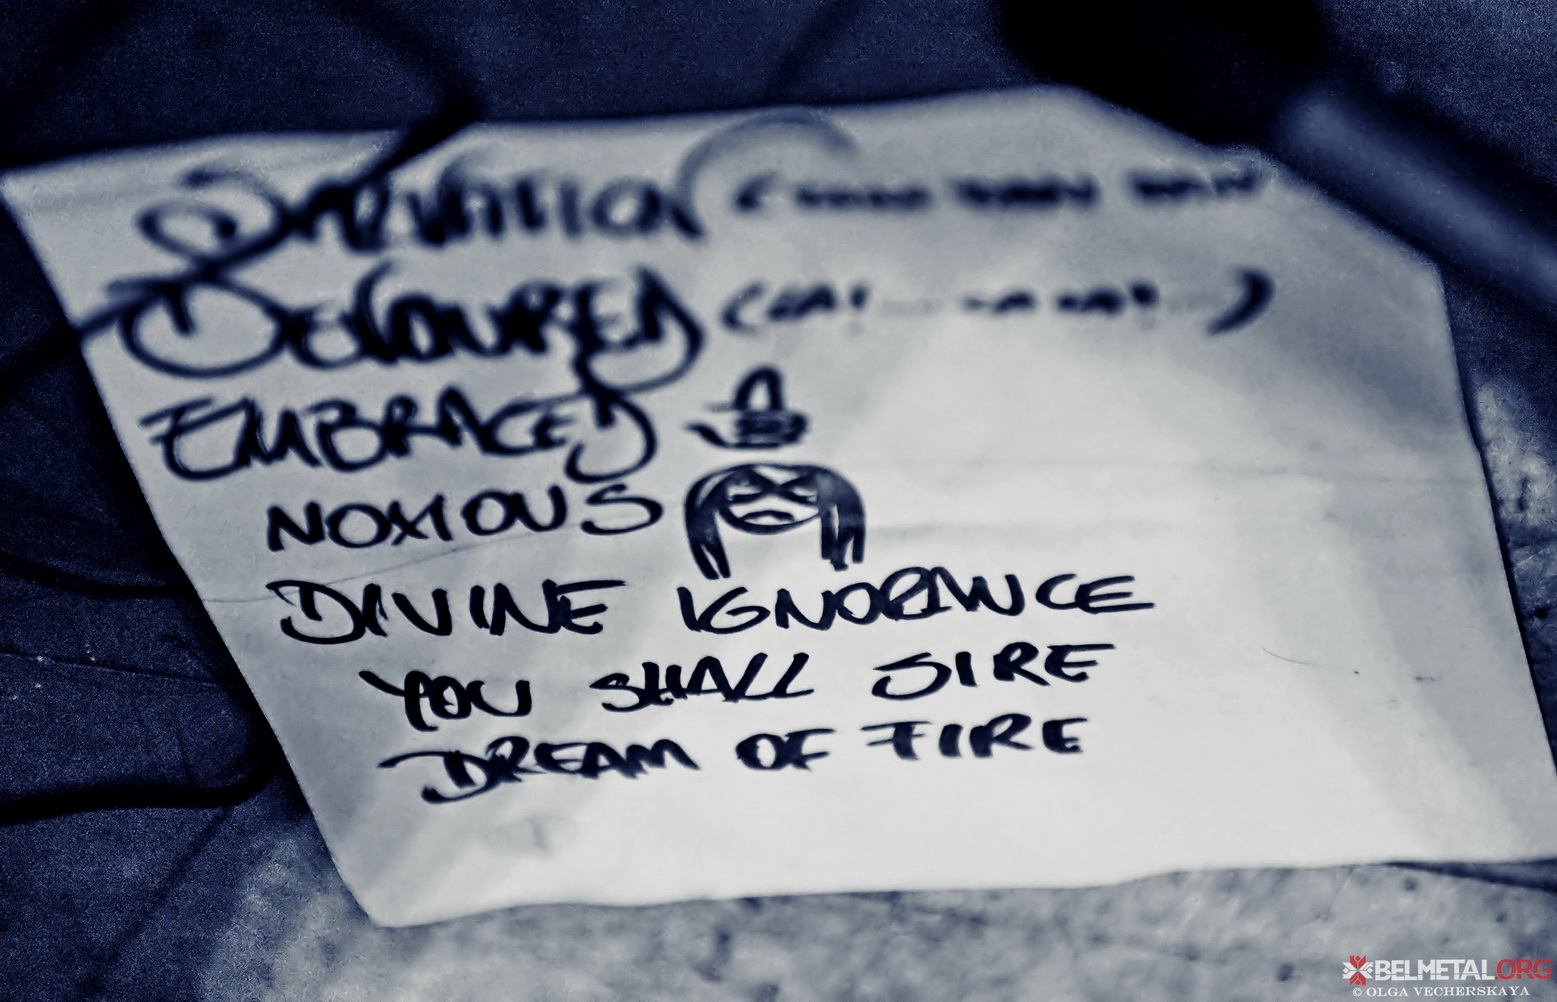 STARVATION (
DEVOURED (
EMBRACED
NOXIOUS
DIVINE IGNORANCE
YOU SHALL SIRE
DREAM OF FIRE
BELMETAL.ORG
© OLGA VECHERSKAYA